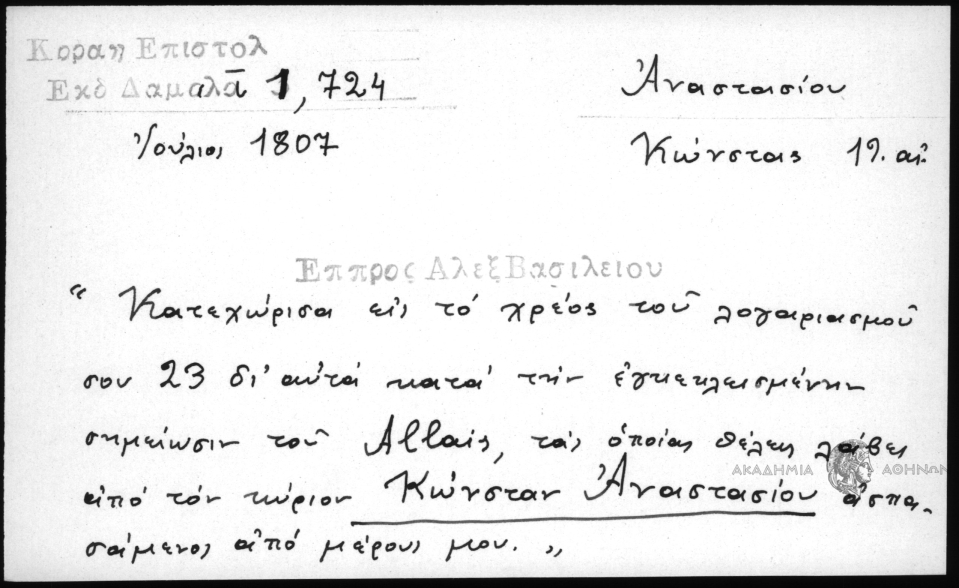 Κοραη Επιστολ
Εκδ Δαμαλᾶ 1, 724
Ἰούλιος 1807
Ἀναστασίου
Κώνστας 19. αἰ.
Επ προς Αλεξ Βασιλειου
“ Κατεχώρισα εἰς τὸ χρέος τοῦ λογαριασμοῦ
σου 23 δι' αὐτὰ κατὰ τὴν ἐγκεκλεισμένην
σημείωσιν τοῦ Allais, τὰς ὁποίας θέλεις λάβει
ἀπὸ τὸν κύριον Κώνσταν Ἀναστασίου ἀσπα-
σάμενος ἀπὸ μέρους μου. „
ΑΚΑΔΗΜΙΑ ΑΘΗΝΩΝ